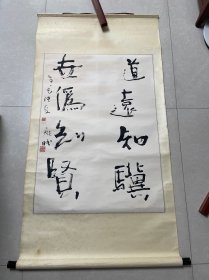 道遠知驥
世偽知賢